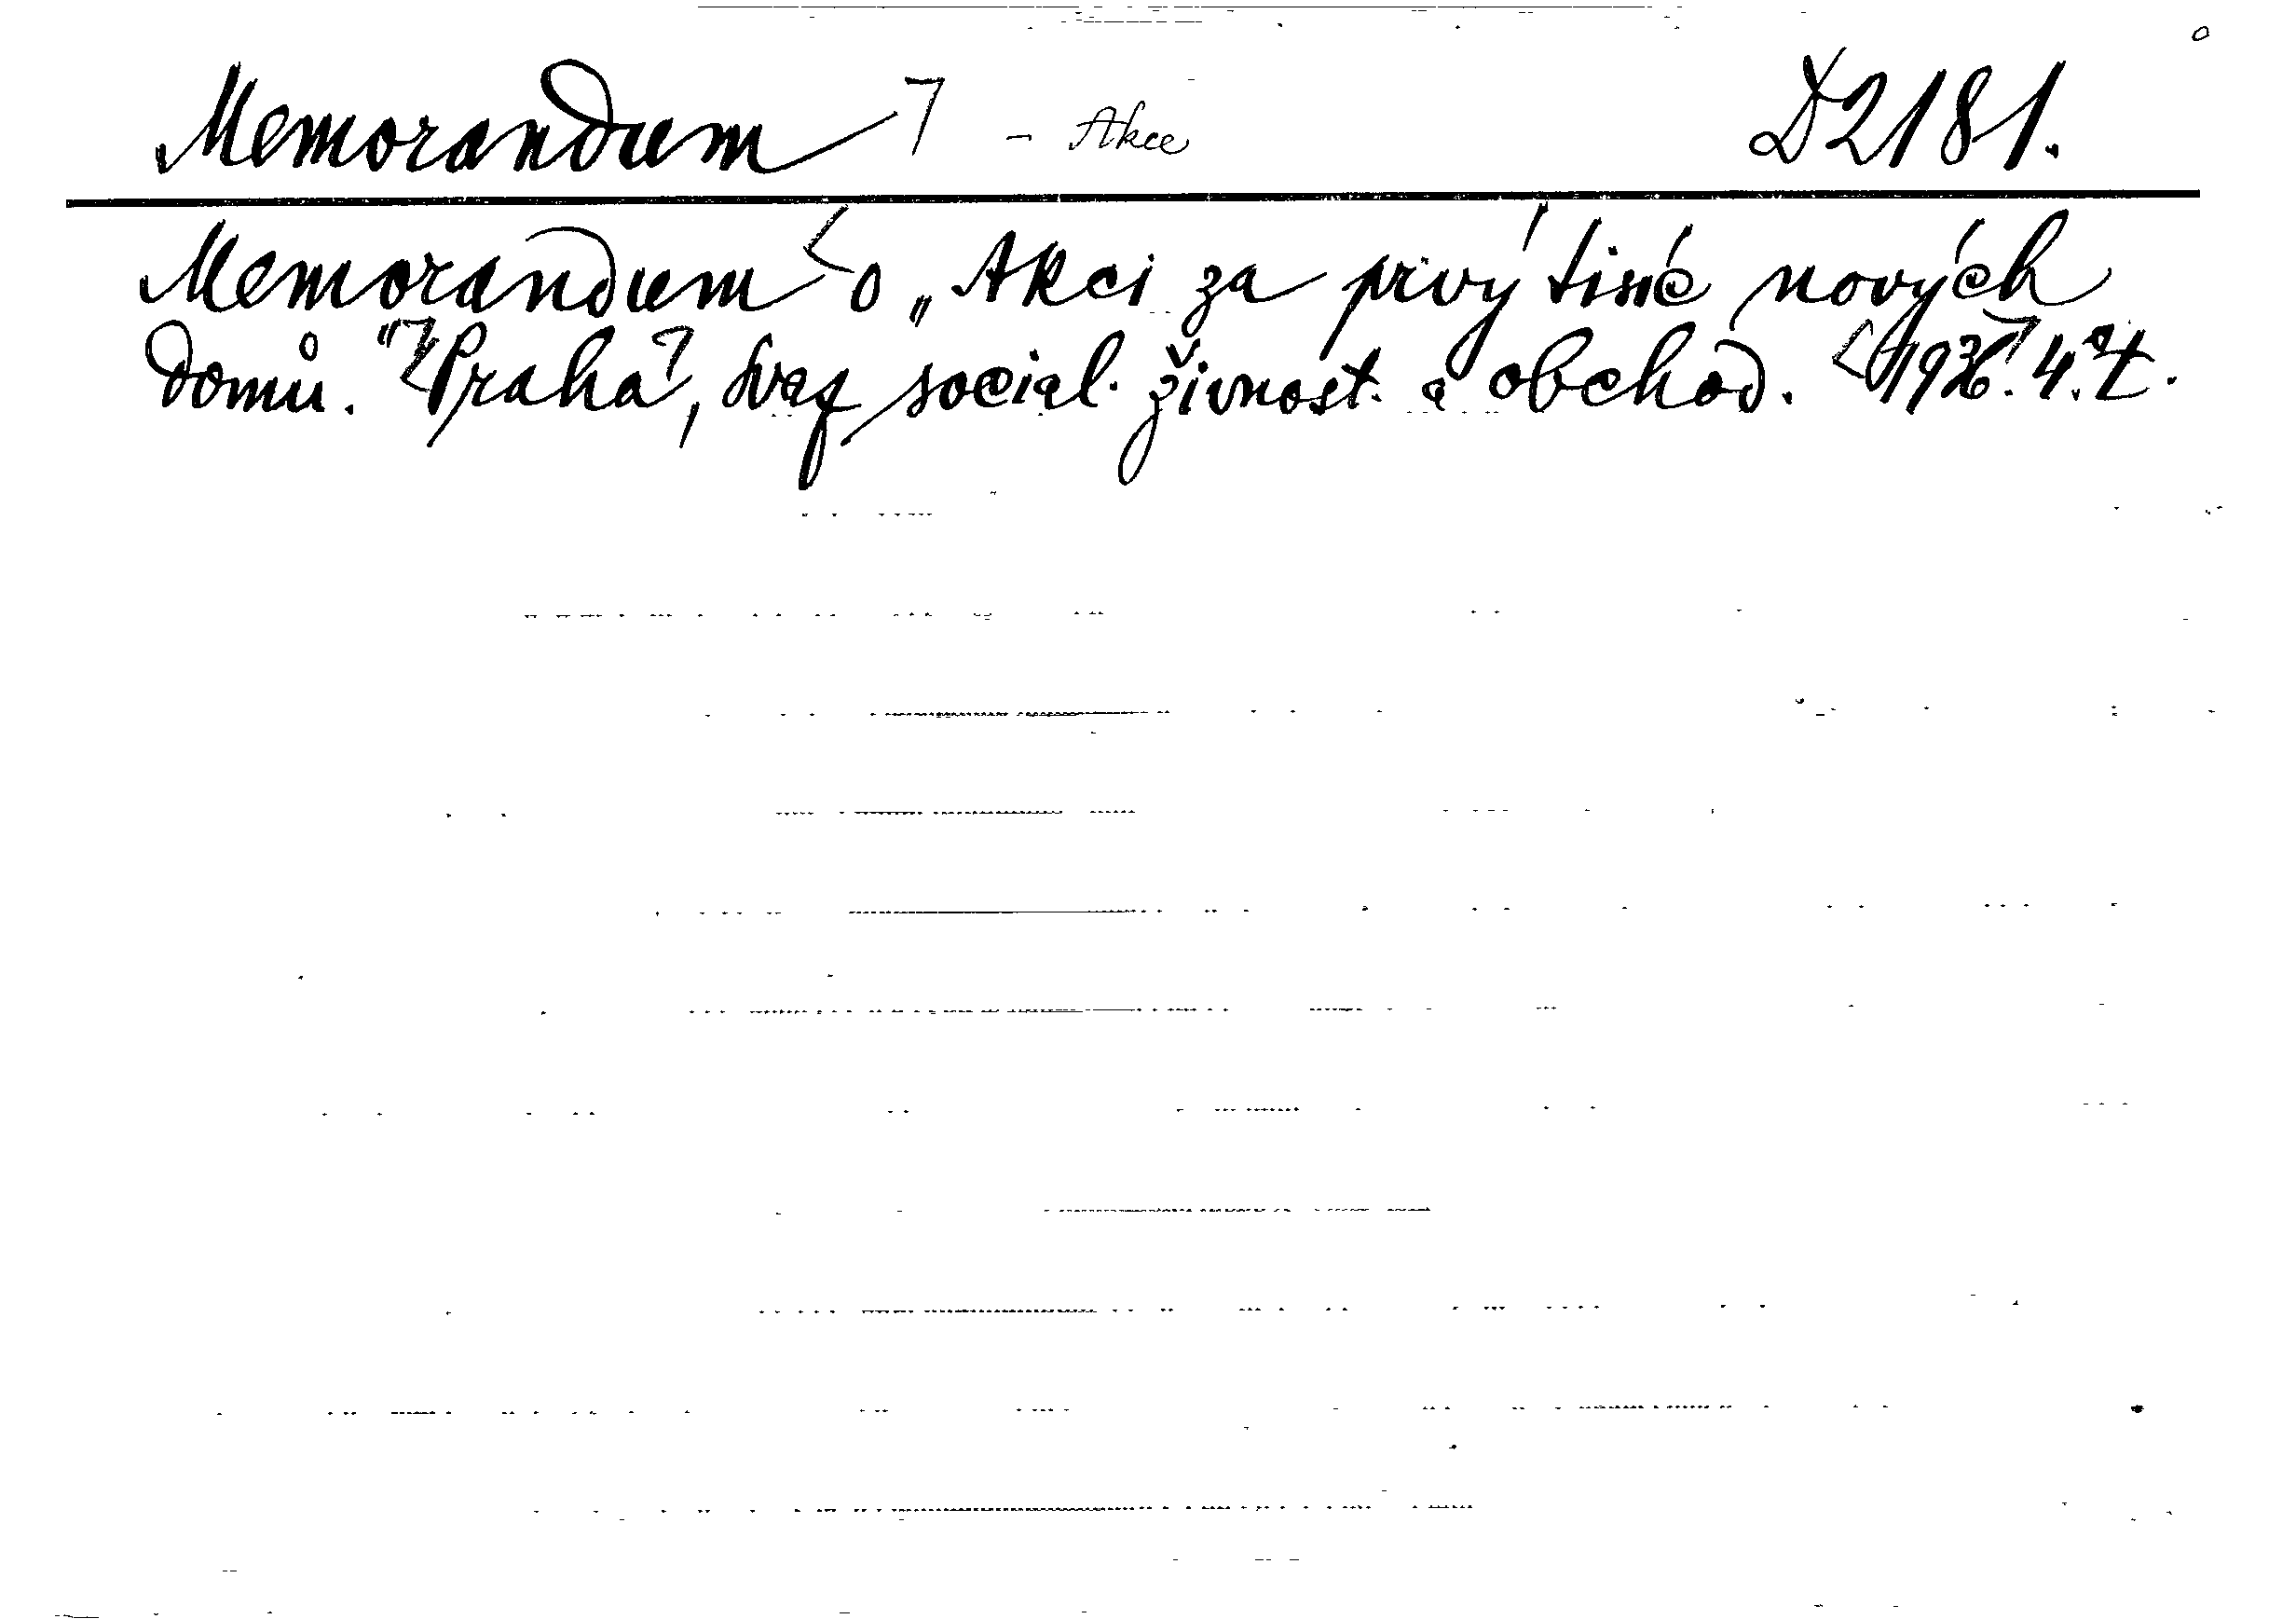 Memorandum - Akce D2181.
Memorandum o „Akci za prvý tisíc nových
domů." Praha, Svaz social. živnost. a obchod. 4.